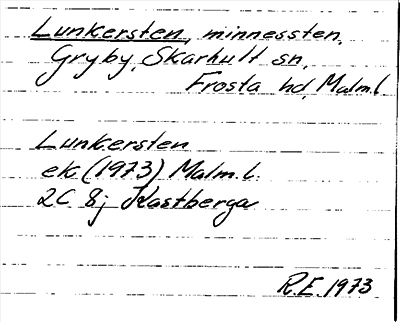 Lunkersten, minnessten,
Gryby, Skarhult sn,
Frosta hd, Malm.l.
Lunkersten
ek. (1973) Malm.l.
2C 8j Kastberga
R.E. 1973